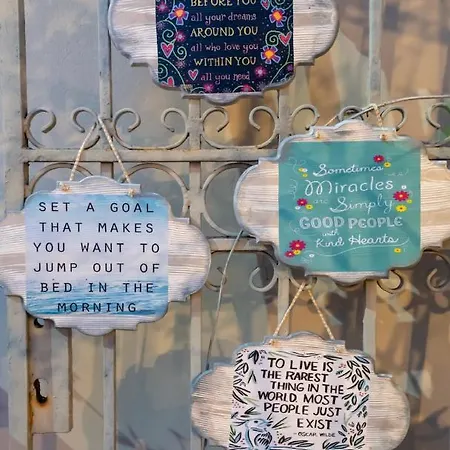 BEFORE YOU
all your dreams
AROUND YOU
all who love you
WITHIN YOU
all you need
SET A GOAL
THAT MAKES
YOU WANT TO
JUMP OUT OF
BED IN THE
MORNING
Sometimes
Miracles
are Simply
GOOD PEOPLE
with
Kind Hearts
TO LIVE IS
THE RAREST
THING IN THE
WORLD. MOST
PEOPLE JUST
EXIST"
- OSCAR WILDE